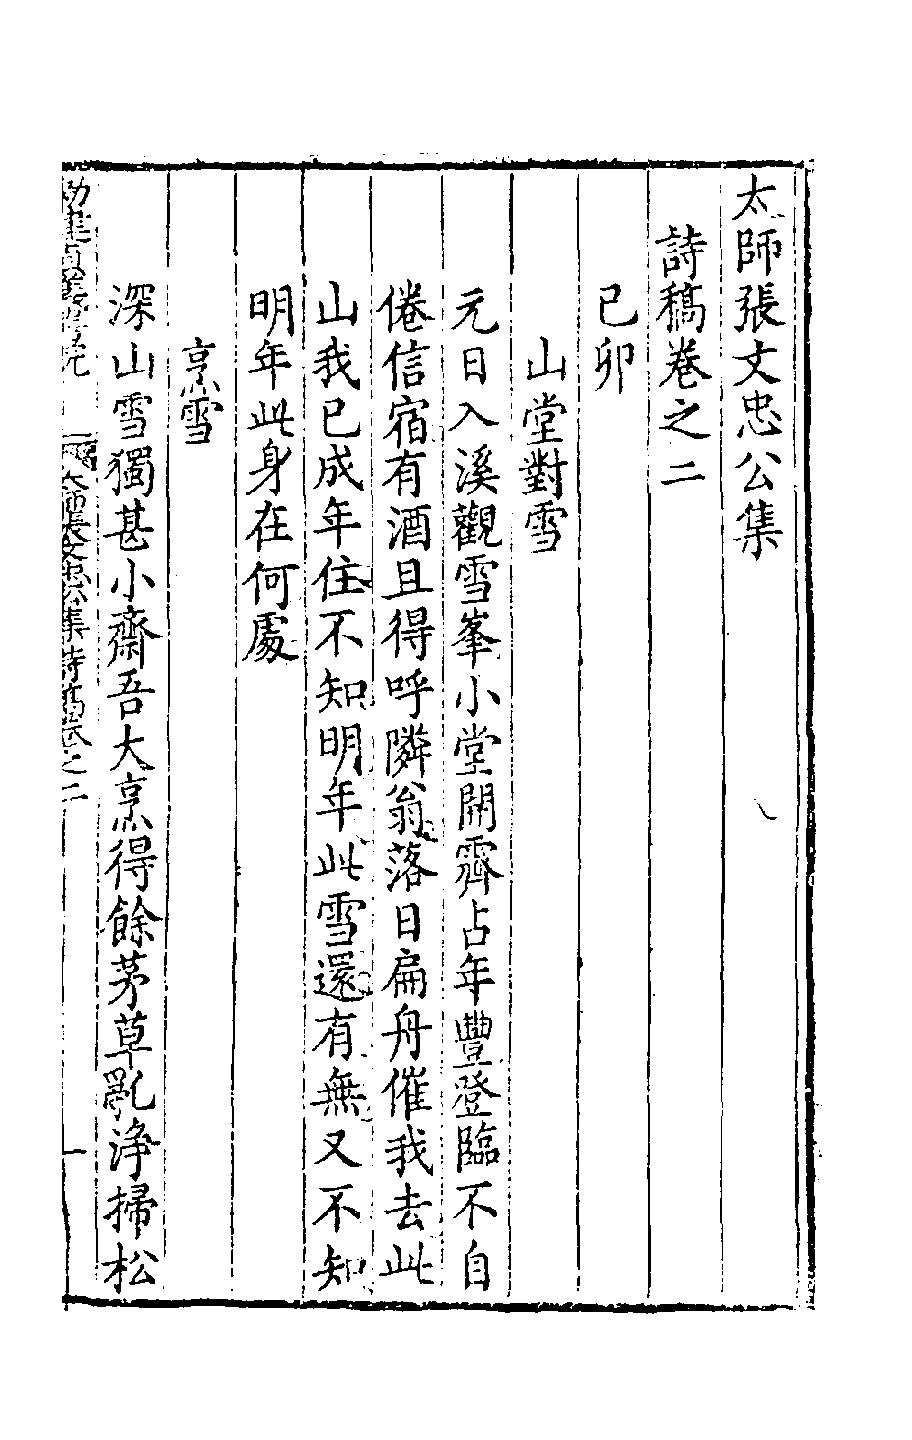 太師張文忠公集
詩稿卷之二
己卯
山堂對雪
元日入溪觀雪峯小堂開霽占年豐登臨不自
倦信宿有酒且得呼隣翁落日扁舟催我去此
山我已成年住不知明年此雪還有無又不知
明年此身在何處
烹雪
深山雪獨甚小齋吾大烹得餘茅草亂浄掃松
太師張文忠公集詩稿卷之二
一